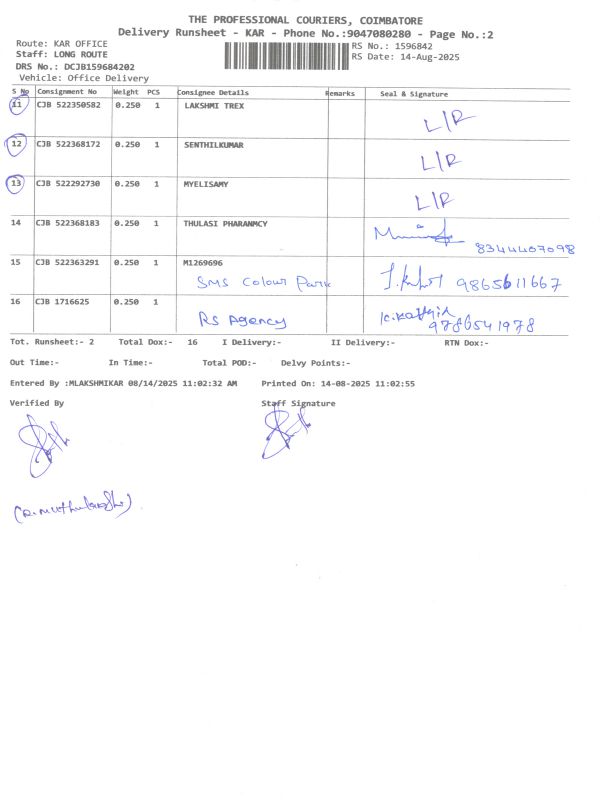 THE PROFESSIONAL COURIERS, COIMBATORE
Delivery Runsheet - KAR - Phone No.:9047080280 - Page No.:2
Route: KAR OFFICE RS No.: 1596842
Staff: LONG ROUTE RS Date: 14-Aug-2025
DRS No.: DCJB159684202
Vehicle: Office Delivery
S No Consignment No Weight PCS Consignee Details Remarks Seal & Signature
11 CJB 522350582 0.250 1 LAKSHMI TREX
L/R
12 CJB 522368172 0.250 1 SENTHILKUMAR
L/R
13 CJB 522292730 0.250 1 MYELISAMY
L/R
14 CJB 522368183 0.250 1 THULASI PHARANMCY
8344407098
15 CJB 522363291 0.250 1 M1269696
SMS Colour Park 9865611667
16 CJB 1716625 0.250 1
RS Agency
9786541978
Tot. Runsheet:- 2 Total Dox:- 16 I Delivery:- II Delivery:- RTN Dox:-
Out Time:- In Time:- Total POD:- Delvy Points:-
Entered By :MLAKSHMIKAR 08/14/2025 11:02:32 AM Printed On: 14-08-2025 11:02:55
Verified By Staff Signature